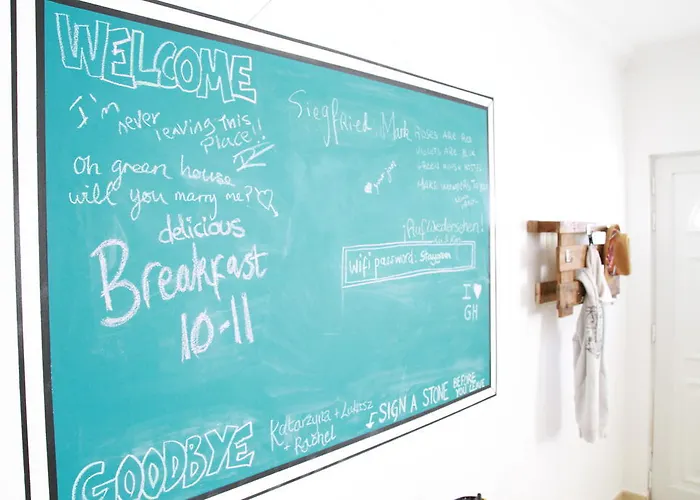 WELCOME
I'm
never
leaving this
place!!
oh green house
will you marry me?
delicious
Breakfast
10-11
GOODBYE
Siegfried Mark
ROSES ARE RED
VIOLETS ARE BLUE
¡Auf Wiedersehen!
wifi password:
I ♥
GH
Katarzyna + Lukasz
+ Rashel
SIGN A STONE BEFORE
YOU LEAVE